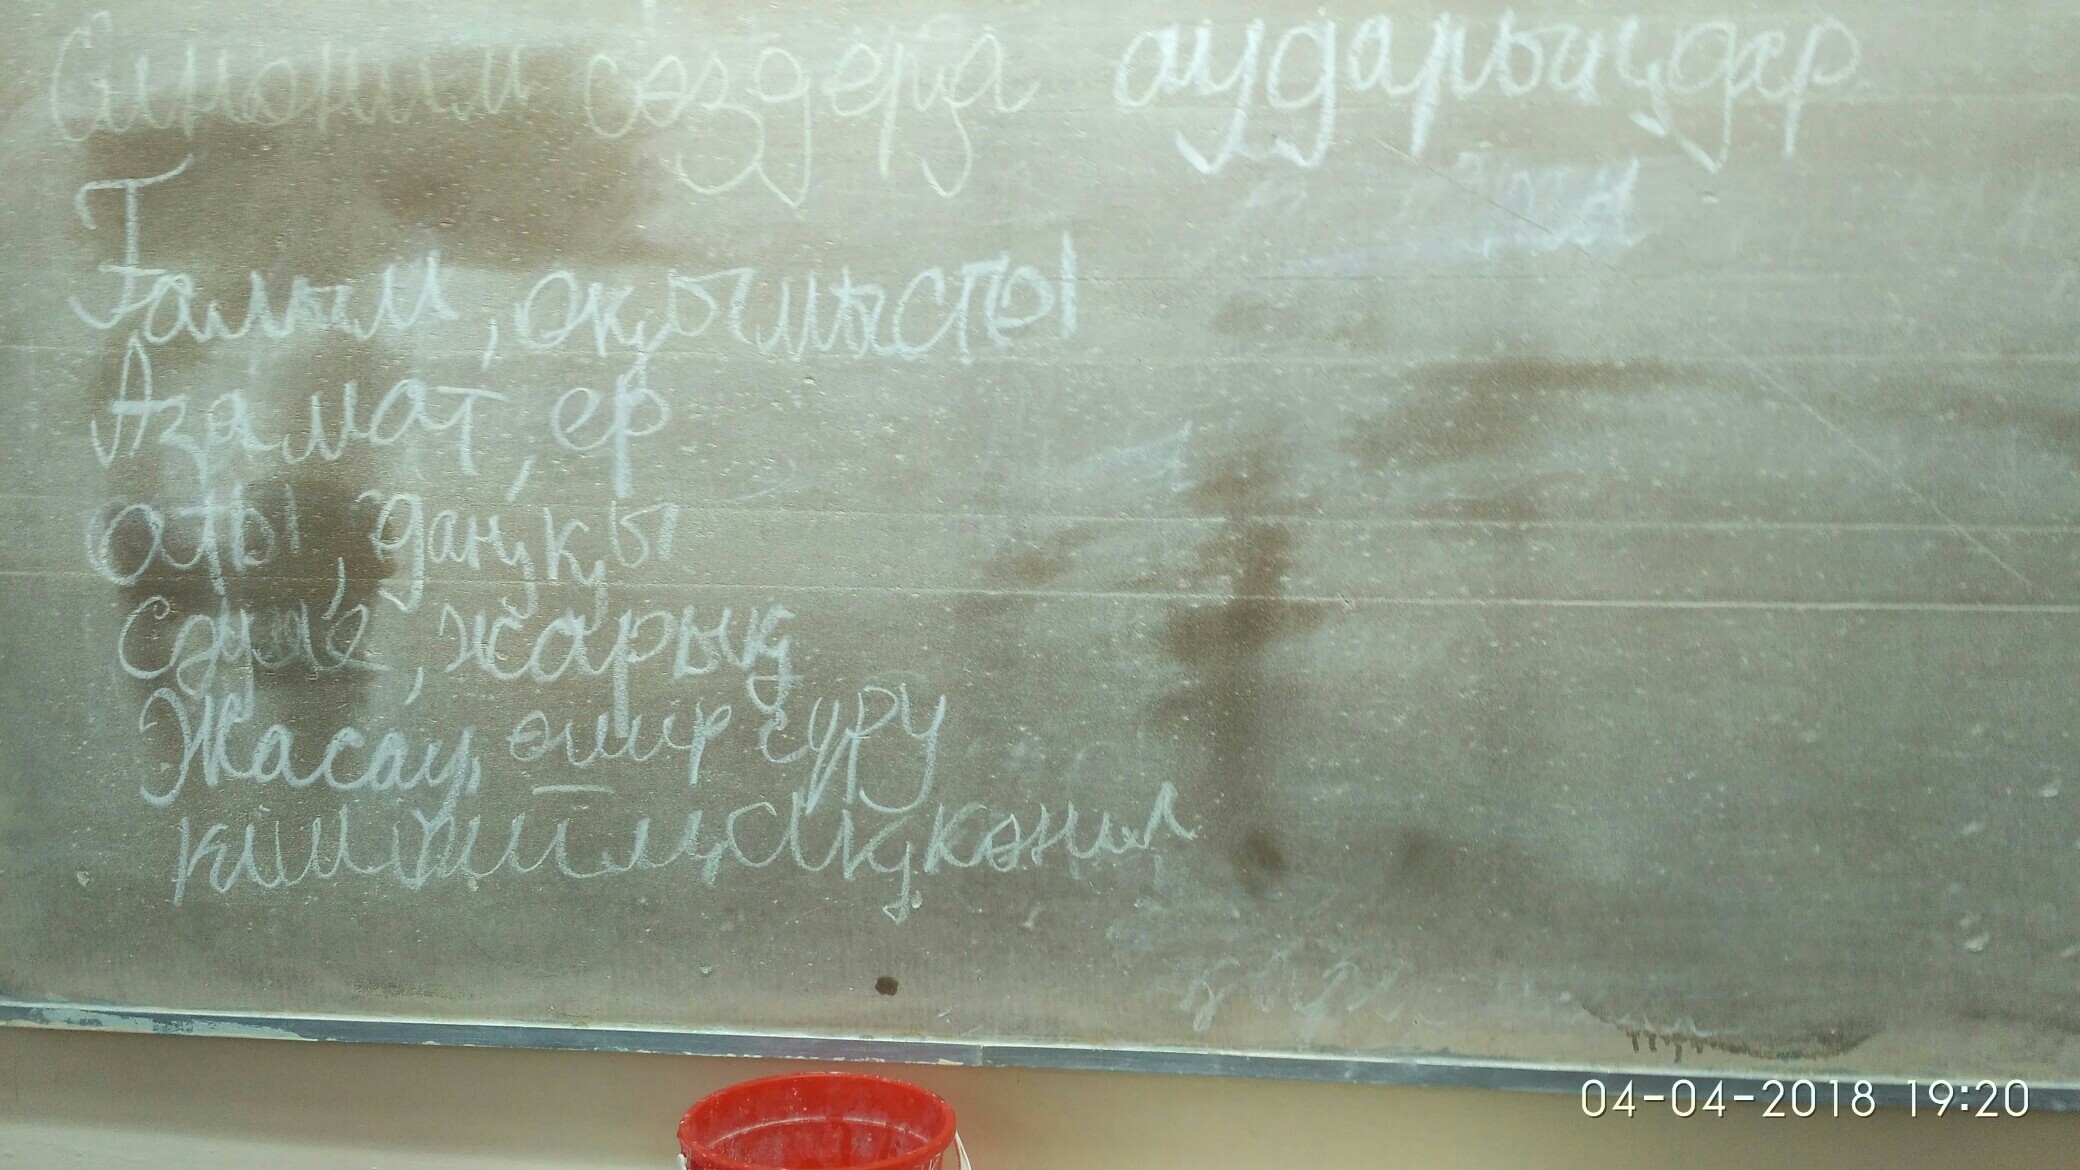 Синоним сөздерді аударыңдар
Ғалым, оқымысты
Азамат, ер
аты, даңқы
Сәуле, жарық
Жасау, өмир сүру
04-04-2018 19:20